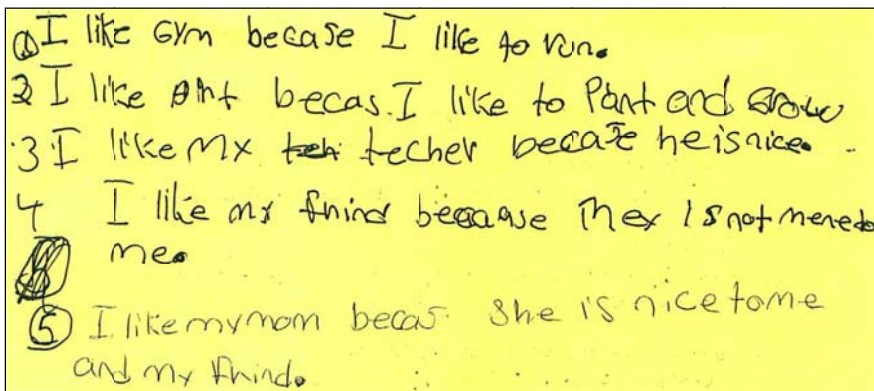 ① I like Gym becase I like to run.
2 I like becas. I like to Pant and
3 I like My techer becase he is nice.
4 I like my frind becaause They is not mene to
me.
⑤ I like my mom becas. She is nice to me
and my frind.